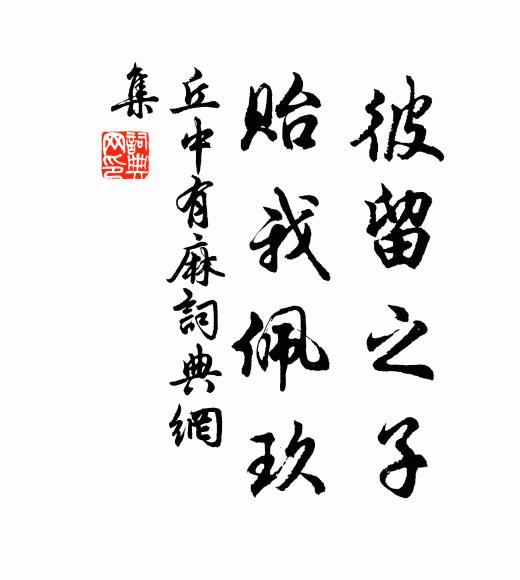 彼留之子
貽我佩玖
丘中有麻詞典網
集
詞典網印